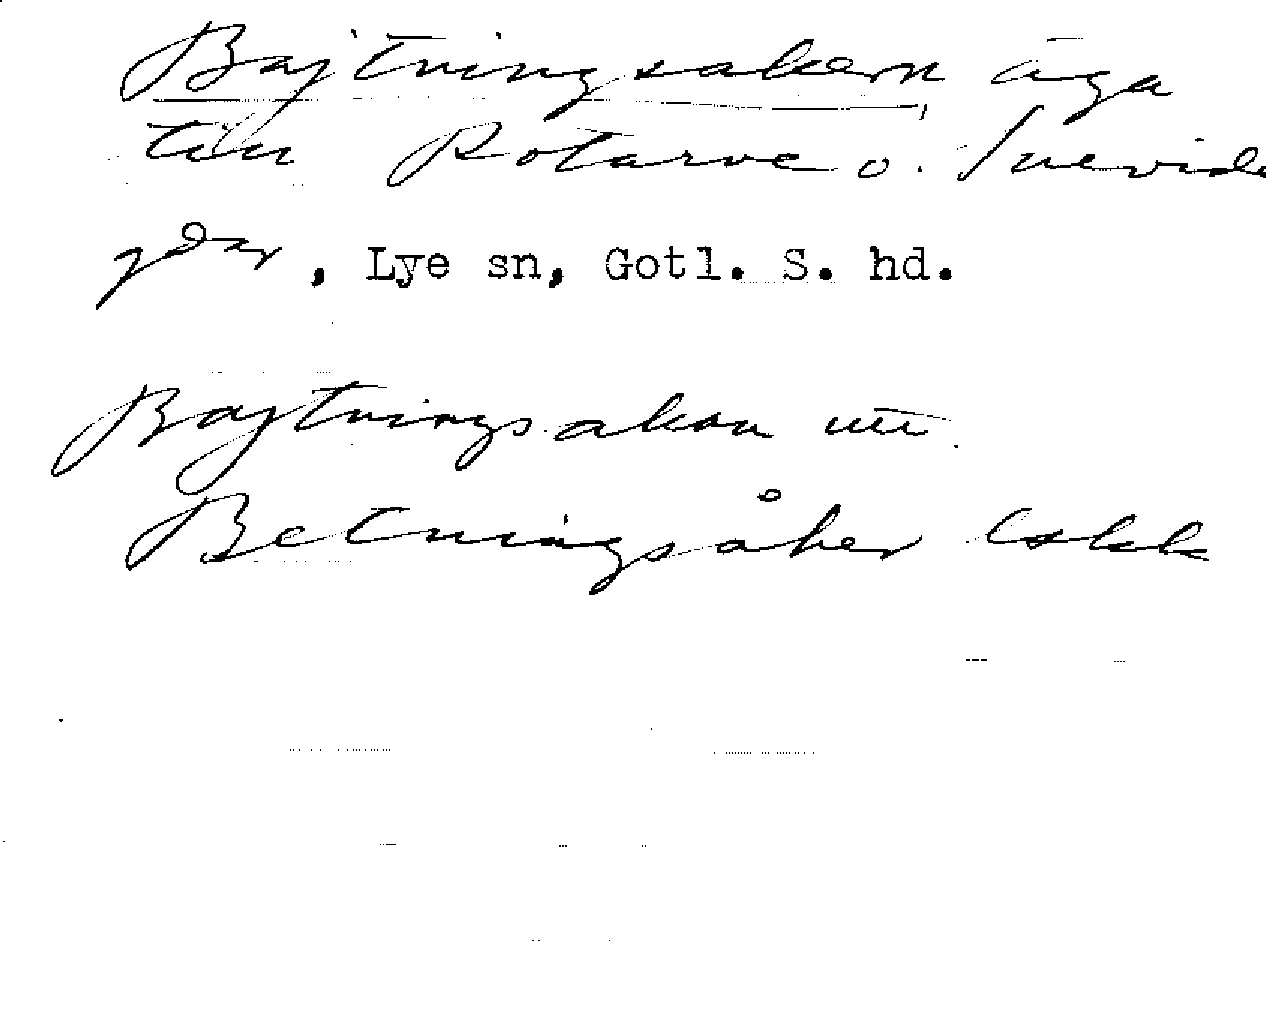 Bajtningsakern äga
till Rotarve o. Snevide
gdar, Lye sn, Gotl. S. hd.
Bajtningsakan
Betningsåker